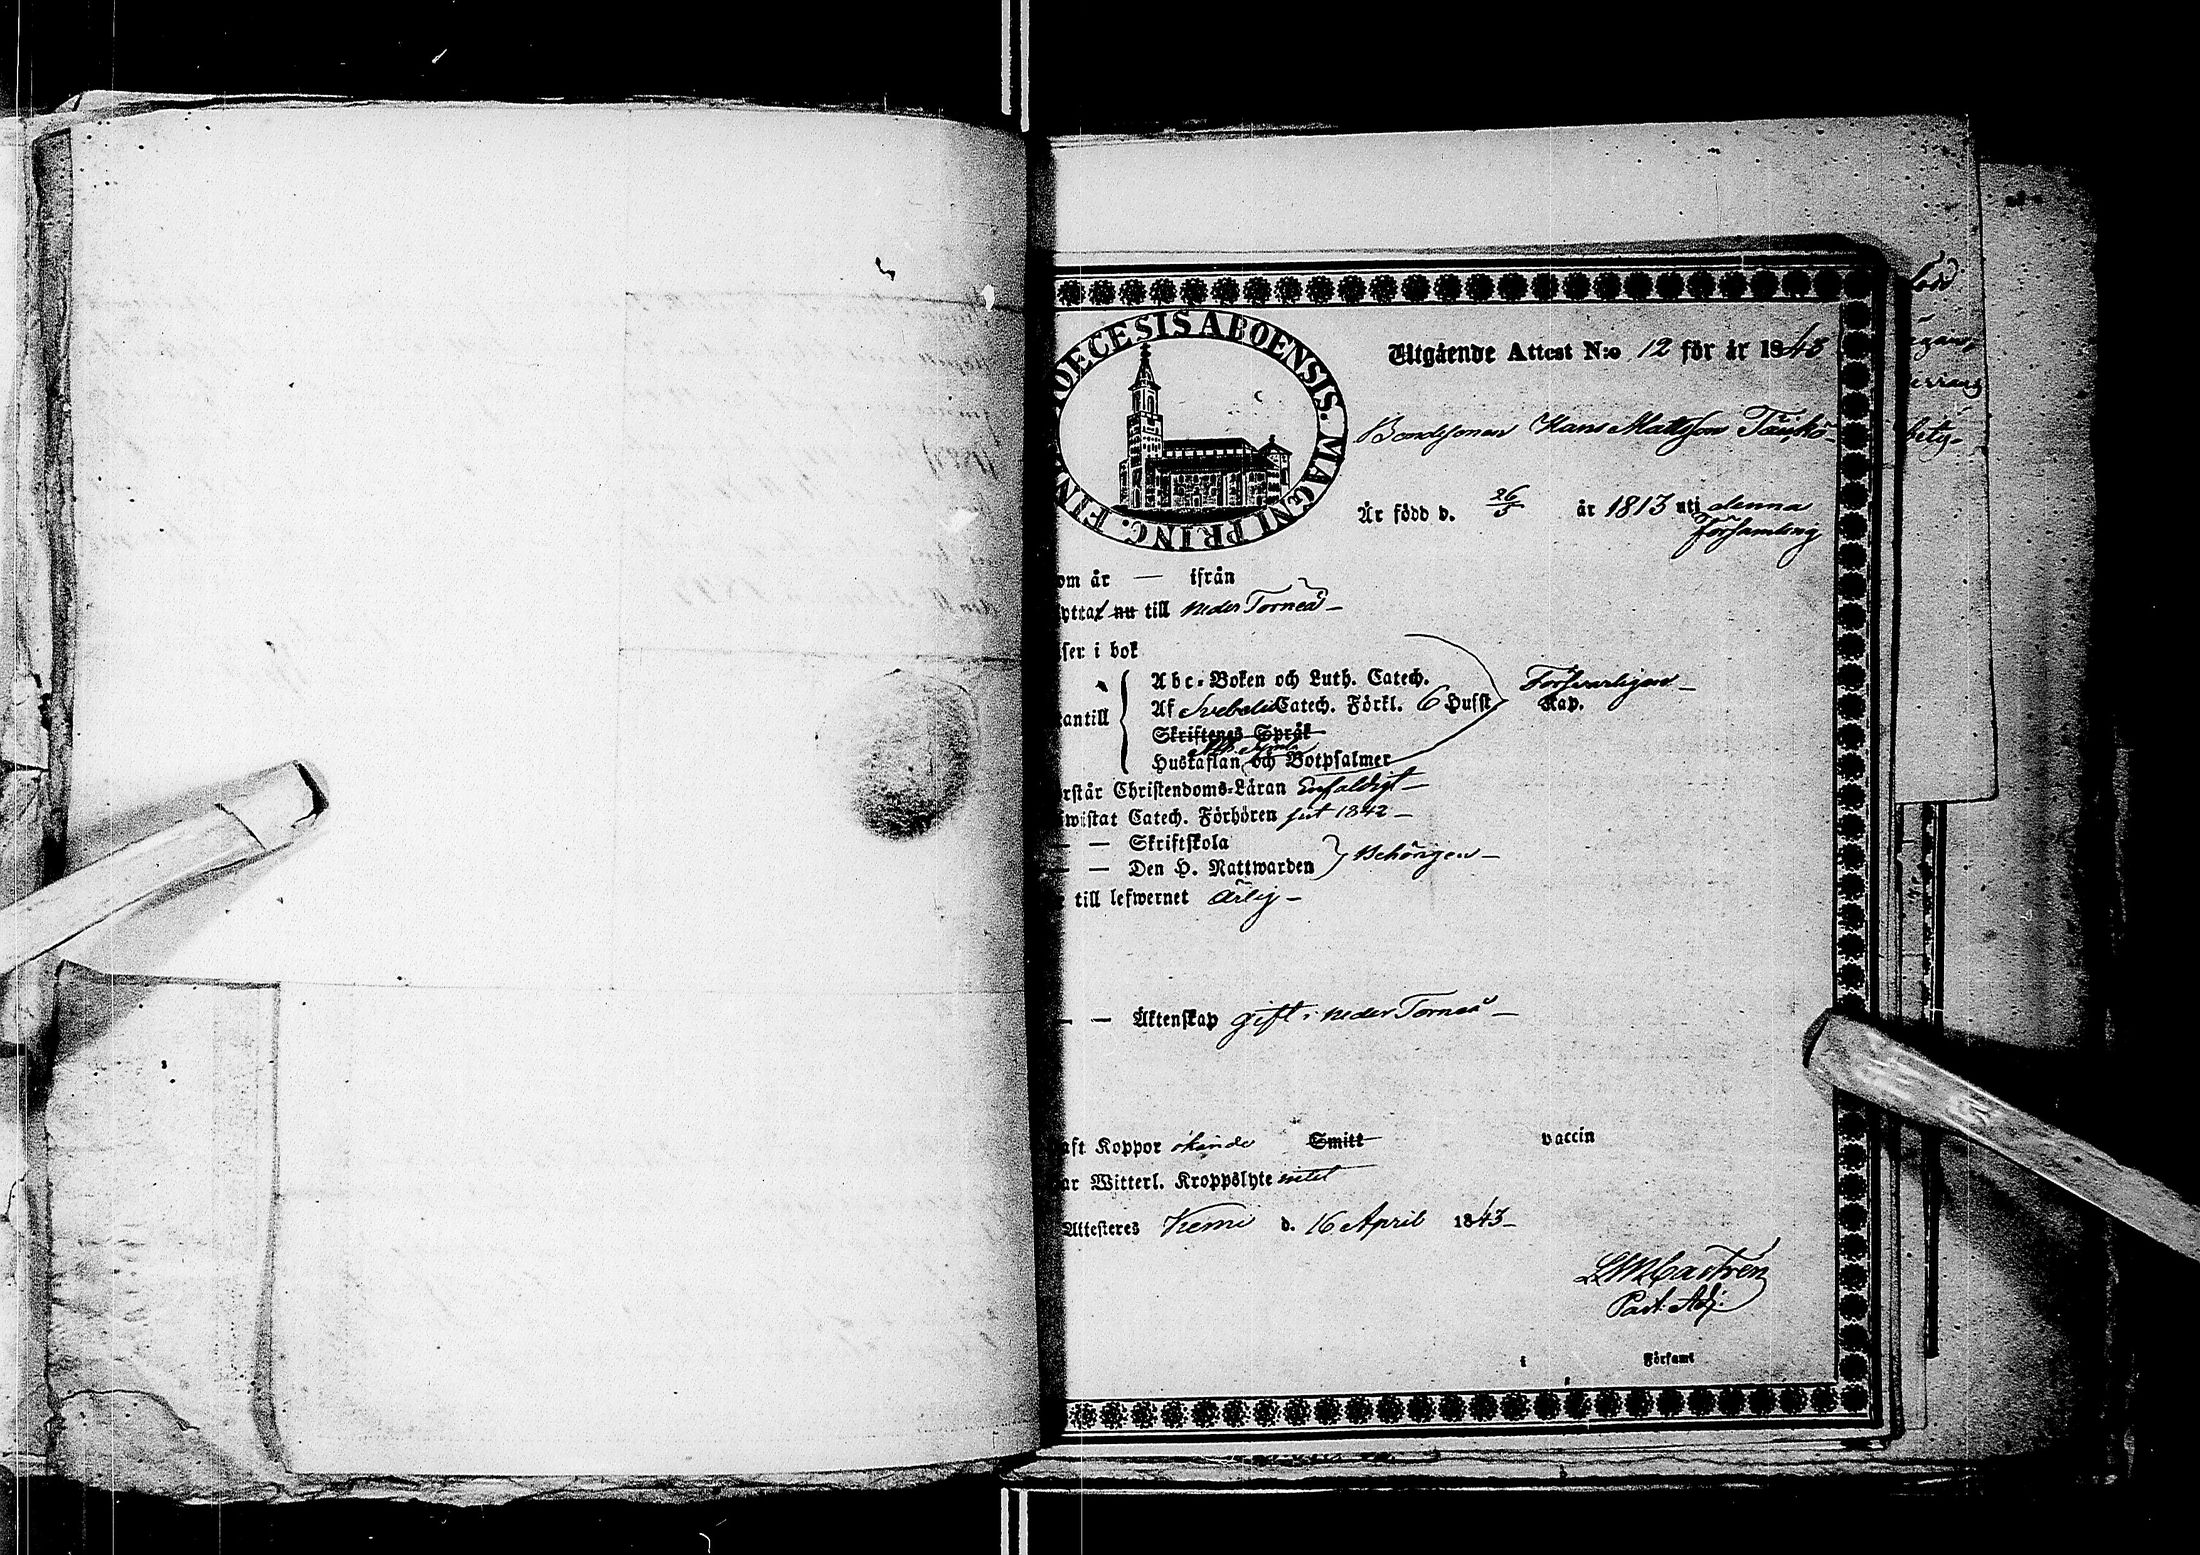 DIOECESIS ABOENSIS. MAGNI PRINC. FIN
Utgående Attest N:o 12 för år 1843
Bondesonen Hans Mattsson
Är född d. 26/5 år 1813 uti denna
församling
om år — ifrån
yttat nu till neder Torneå —
iser i bok
Abc-Boken och Luth. Catech. Försvarligen —
antill Af Svebelii Catech. Förkl. 6 Husst Kap.
Skriftenes Språk
Hustaflan och Botpsalmer
rstår Christendoms-Läran Enfaldigt —
wistat Catech. Förhören sist 1842 —
— — Skriftskola
— — Den H. Nattwarden Behörigen —
till lefwernet ärlig —
— — Äktenskap gift i neder Torneå —
aft Koppor okände Smitt vaccin
ar Witterl. Kroppslyte intet
Attesteres Kemi d. 16 April 1843 —
Castrén
Past. Adj.
i Församl